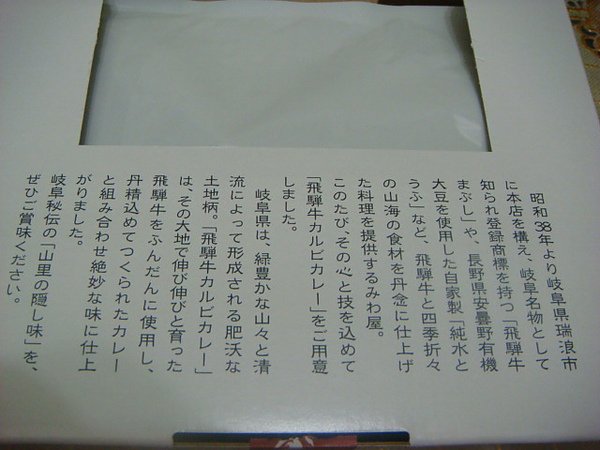 昭和38年より岐阜県瑞浪市
に本店を構え、岐阜名物として
知られ登録商標を持つ「飛騨牛
まぶし」や、長野県安曇野有機
大豆を使用した自家製「純水と
うふ」など、飛騨牛と四季折々
の山海の食材を丹念に仕上げ
た料理を提供するみわ屋。
このたび、その心と技を込めて
「飛騨牛カルビカレー」をご用意
しました。
岐阜県は、緑豊かな山々と清
流によって形成される肥沃な
土地柄。「飛騨牛カルビカレー」
は、その大地で伸び伸びと育った
飛騨牛をふんだんに使用し、
丹精込めてつくられたカレー
と組み合わせ絶妙な味に仕上
がりました。
岐阜秘伝の「山里の隠し味」を、
ぜひご賞味ください。